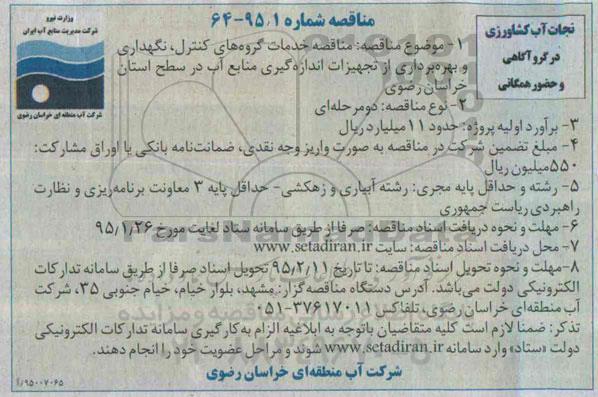 مناقصه شماره ۹۵،۱-۶۴
نجات آب کشاورزی
در گرو آگاهی
و حضور همگانی
وزارت نیرو
شرکت مدیریت منابع آب ایران
شرکت آب منطقه ای خراسان رضوی
۱- موضوع مناقصه: مناقصه خدمات گروه‌های کنترل، نگهداری
و بهره‌برداری از تجهیزات اندازه‌گیری منابع آب در سطح استان
خراسان رضوی
۲- نوع مناقصه: دومرحله‌ای
۳- برآورد اولیه پروژه: حدود ۱۱ میلیارد ریال
۴- مبلغ تضمین شرکت در مناقصه به صورت واریز وجه نقدی، ضمانت‌نامه بانکی یا اوراق مشارکت:
۵۵۰میلیون ریال
۵- رشته و حداقل پایه مجری: رشته آبیاری و زهکشی- حداقل پایه ۳ معاونت برنامه‌ریزی و نظارت
راهبردی ریاست جمهوری
۶- مهلت و نحوه دریافت اسناد مناقصه: صرفا از طریق سامانه ستاد لغایت مورخ ۹۵/۱/۲۶
۷- محل دریافت اسناد مناقصه: سایت www.setadiran.ir
۸-مهلت و نحوه تحویل اسناد مناقصه: تا تاریخ ۹۵/۲/۱۱ تحویل اسناد صرفا از طریق سامانه تدارکات
الکترونیکی دولت می‌باشد. آدرس دستگاه مناقصه‌گزار: مشهد، بلوار خیام، خیام جنوبی ۳۵، شرکت
آب منطقه‌ای خراسان رضوی، تلفاکس ۳۷۶۱۷۰۱۱-۰۵۱
تذکر: ضمنا لازم است کلیه متقاضیان باتوجه به ابلاغیه الزام به‌کارگیری سامانه تدارکات الکترونیکی
دولت «ستاد» وارد سامانه www.setadiran.ir شوند و مراحل عضویت خود را انجام دهند.
شرکت آب منطقه‌ای خراسان رضوی
۹۵۰۰۷۰۶۵/آ